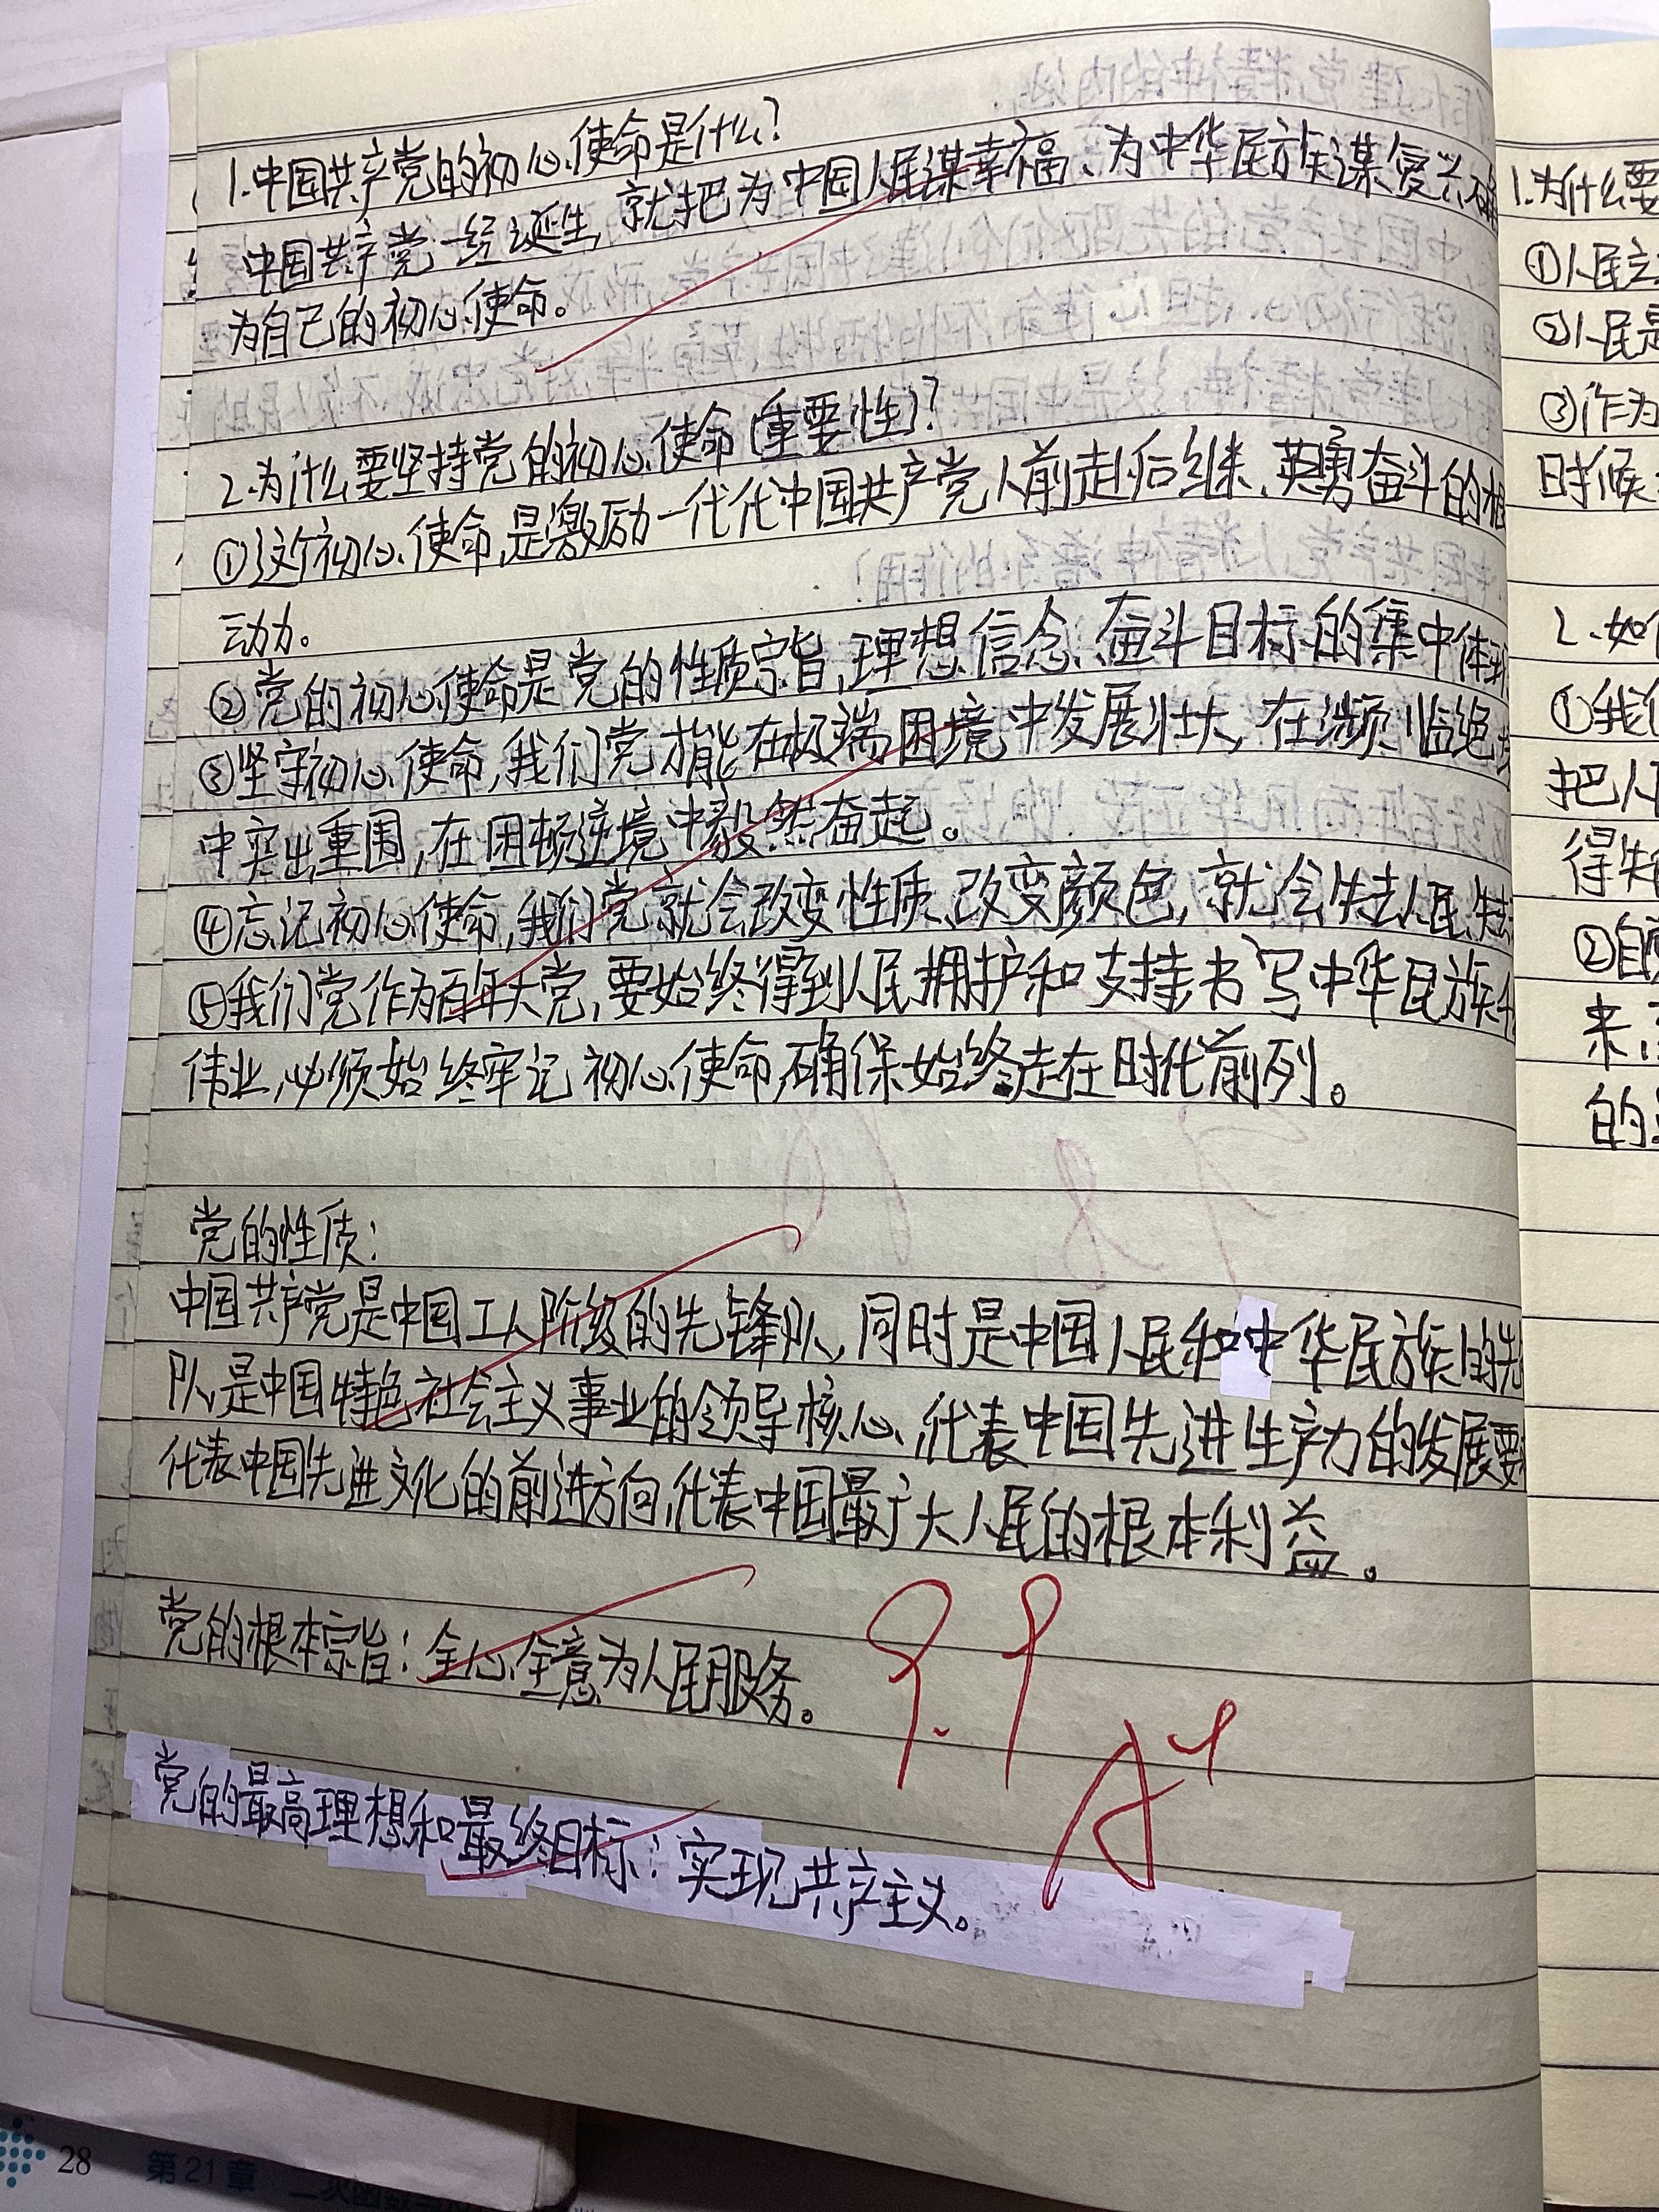 1.中国共产党的初心使命是什么?
中国共产党一经诞生,就把为中国人民谋幸福、为中华民族谋复兴确
为自己的初心使命。
2.为什么要坚持党的初心使命(重要性)?
①这个初心使命,是激励一代代中国共产党人前赴后继、英勇奋斗的根
动力。
②党的初心使命是党的性质宗旨,理想信念、奋斗目标的集中体现
③坚守初心使命,我们党才能在极端困境中发展壮大,在濒临绝
中突出重围,在困顿逆境中毅然奋起。
④忘记初心使命,我们党就会改变性质、改变颜色,就会失去人民,失去
⑤我们党作为百年大党,要始终得到人民拥护和支持,书写中华民族千
伟业,必须始终牢记初心使命,确保始终走在时代前列。
党的性质:
中国共产党是中国工人阶级的先锋队,同时是中国人民和中华民族的先
队,是中国特色社会主义事业的领导核心、代表中国先进生产力的发展要
代表中国先进文化的前进方向,代表中国最广大人民的根本利益。
党的根本宗旨:全心全意为人民服务。
9.9
A+
党的最高理想和最终目标:实现共产主义。
1.为什么要
①人民立
②人民是
③作为
时候
2.如何
①我们
把人
得失
②自
来,
的
28 第21章 二次函数与